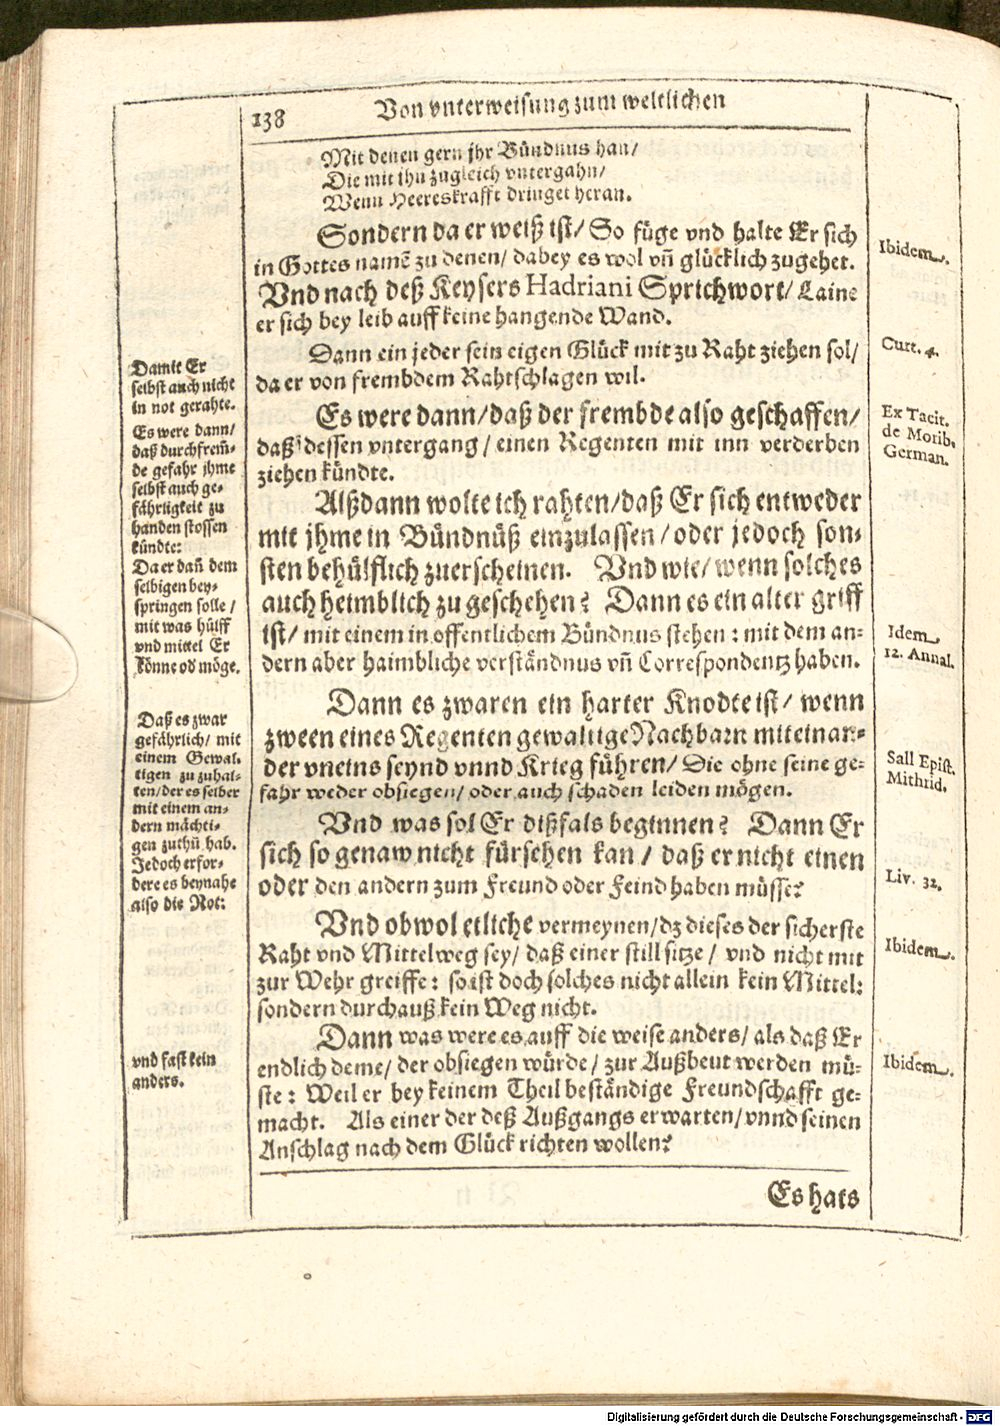 138
Von vnterweisung zum weltlichen
Mit denen gern jhr Bündnus han/
Die mit ihn zugleich vntergahn/
Wenn Heereskrafft dringet heran.
Sondern da er weiß ist/ So füge vnd halte Er sich
in Gottes namẽ zu denen/ dabey es wol vñ glücklich zugehet.
Vnd nach deß Keysers Hadriani Sprichwort/ Laine
er sich bey leib auff keine hangende Wand.
Dann ein jeder sein eigen Glück mit zu Raht ziehen sol/
da er von frembdem Rahtschlagen wil.
Es were dann/ daß der frembde also geschaffen/
daß dessen vntergang/ einen Regenten mit inn verderben
ziehen kündte.
Alßdann wolte ich rahten/ daß Er sich entweder
mit jhme in Bündnüß einzulassen/ oder jedoch son-
sten behülflich zuerscheinen. Vnd wie/ wenn solches
auch heimblich zu geschehen? Dann es ein alter griff
ist/ mit einem in offentlichem Bündnus stehen: mit dem an-
dern aber haimbliche verständnus vñ Correspondentz haben.
Dann es zwaren ein harter Knodte ist/ wenn
zween eines Regenten gewaltige Nachbarn miteinan-
der vneins seynd vnnd Krieg führen/ Die ohne seine ge-
fahr weder obsiegen/ oder auch schaden leiden mögen.
Vnd was sol Er dißfals beginnen? Dann Er
sich so genaw nicht fürsehen kan/ daß er nicht einen
oder den andern zum Freund oder Feind haben müsse?
Vnd obwol etliche vermeynen/ dz dieses der sicherste
Raht vnd Mittelweg sey/ daß einer still sitze/ vnd nicht mit
zur Wehr greiffe: so ist doch solches nicht allein kein Mittel:
sondern durchauß kein Weg nicht.
Dann was were es auff die weise anders/ als daß Er
endlich deme/ der obsiegen würde/ zur Außbeut werden mü-
ste: Weil er bey keinem Theil beständige Freundschafft ge-
macht. Als einer der deß Außgangs erwarten/ vnnd seinen
Anschlag nach dem Glück richten wollen?
Es hats
Damit Er
selbst auch nicht
in not gerahte.
Es were dann/
daß durch frem̃-
de gefahr jhme
selbst auch ge-
fährligkeit zu
handen stossen
kündte:
Da er dañ dem
selbigen bey-
springen solle/
mit was hülff
vnd mittel Er
könne od möge.
Daß es zwar
gefährlich/ mit
einem Gewal-
tigen zu zuhal-
ten/ der es selber
mit einem an-
dern mächti-
gen zuthũ hab.
Jedoch erfor-
dere es beynahe
also die Not:
vnd fast kein
anders.
Ibidem.
Curt. 4.
Ex Tacit.
de Morib.
German.
Idem
12. Annal.
Sall Epist.
Mithrid.
Liv. 32.
Ibidem.
Ibidem.
Digitalisierung gefördert durch die Deutsche Forschungsgemeinschaft - DFG